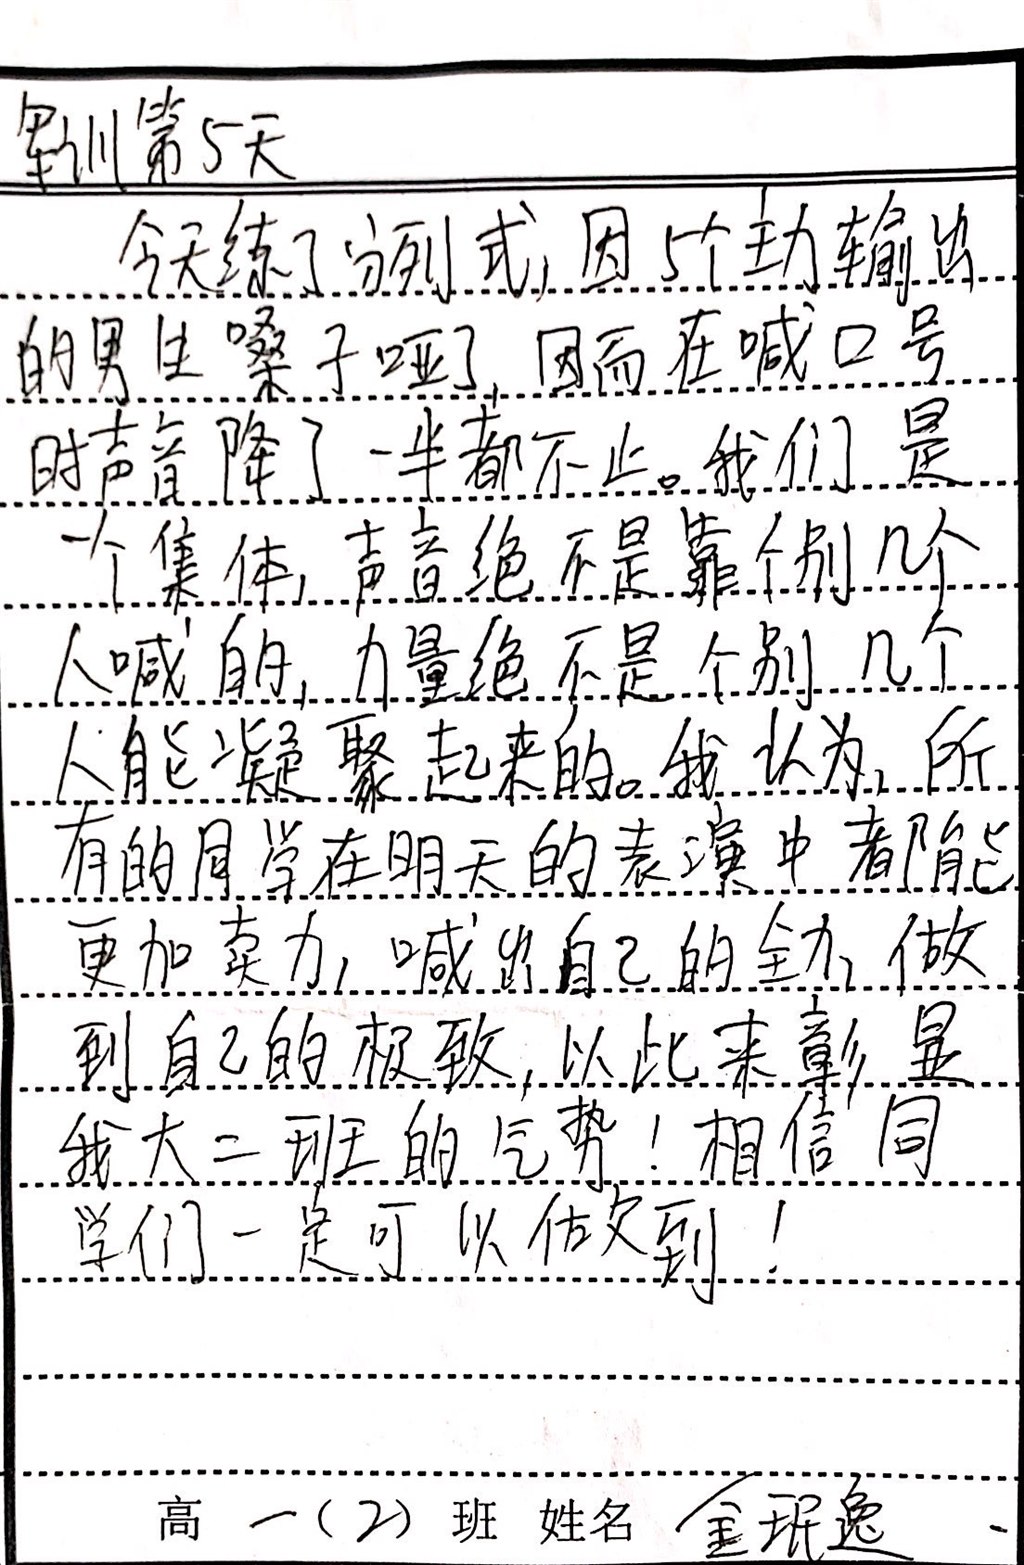 军训第5天
今天练了分列式,因5个主力输出
的男生嗓子哑了,因而在喊口号
时声音降了一半都不止。我们是
一个集体,声音绝不是靠个别几个
人喊的,力量绝不是个别几个
人能凝聚起来的。我认为,所
有的同学在明天的表演中都能
更加卖力,喊出自己的全力,做
到自己的极致,以此来彰显
我大二班的气势!相信同
学们一定可以做到!
高一(2)班 姓名 金珉逸